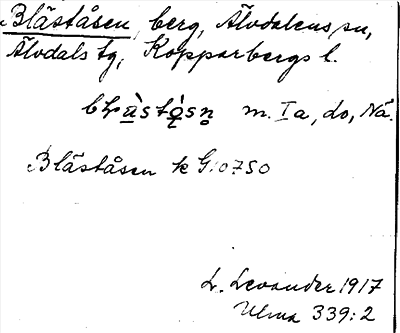 Blåståsen, berg, Älvdalens sn,
Älvdals tg, Kopparbergs l.
m. Ia, do, Nä.
Blåståsen k G:0750
L. Levander 1917
Ulma 339:2